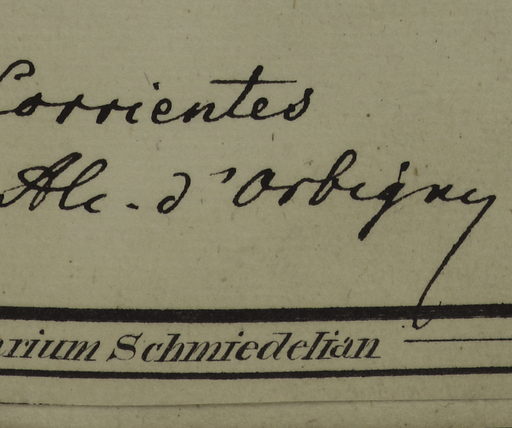 Corrientes
Alc. d'Orbigny
arium Schmiedelian